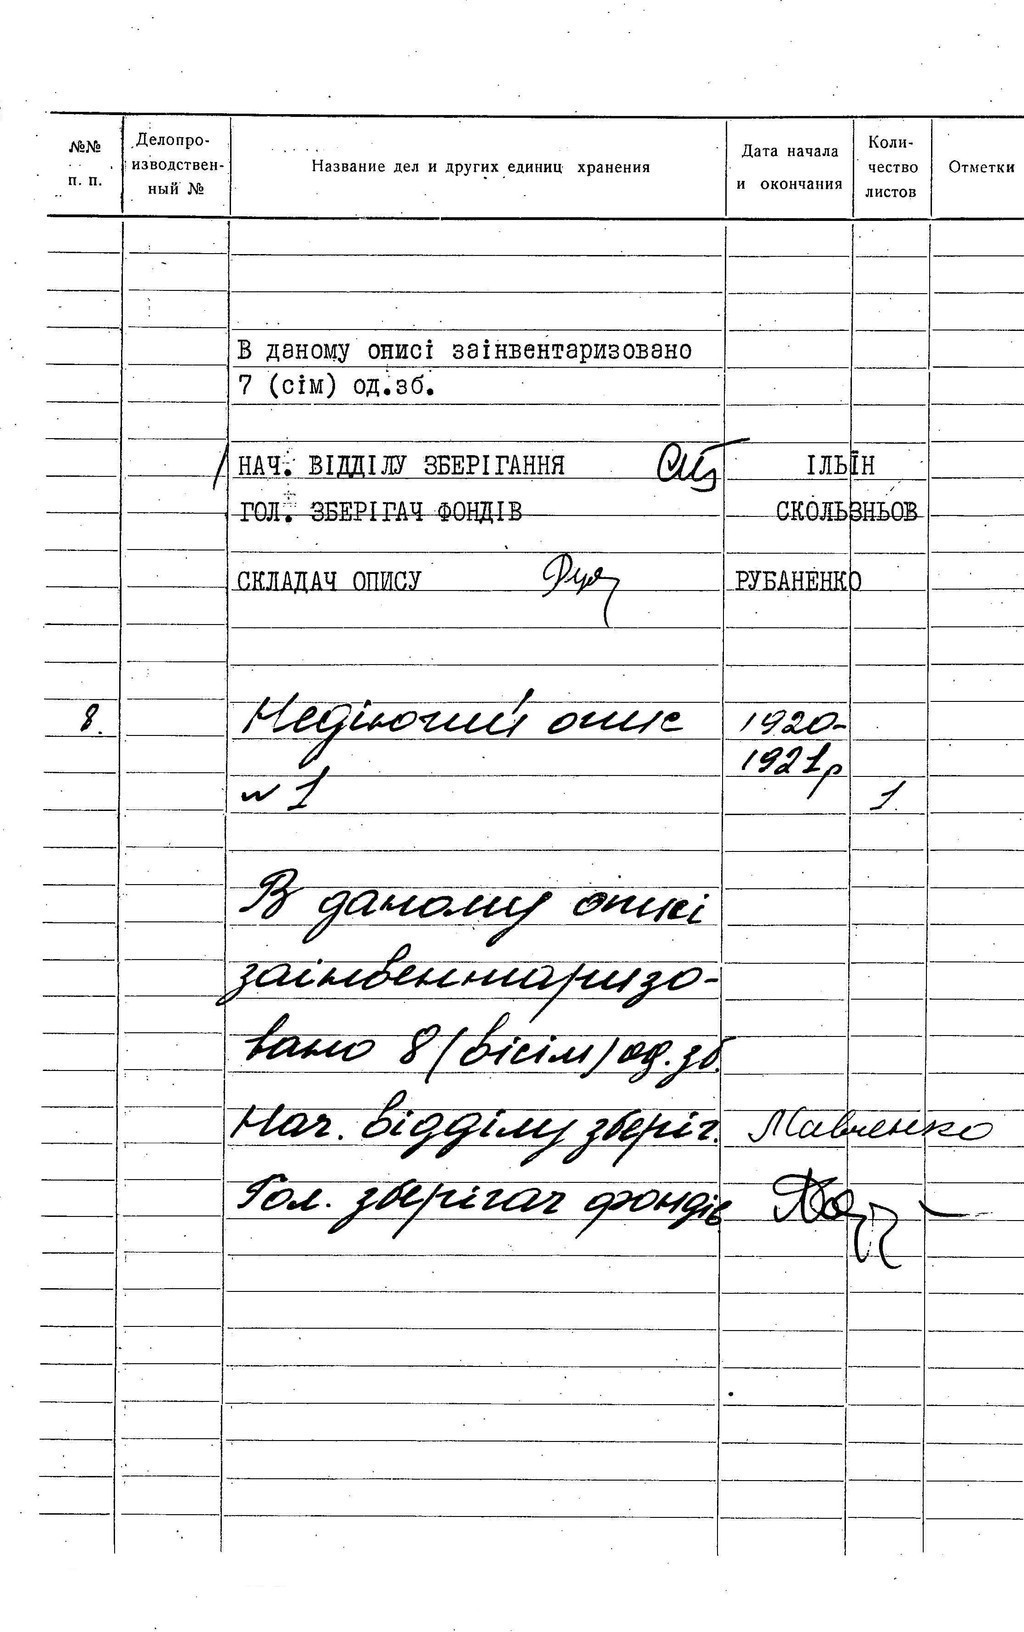 №№ п. п.
Делопро-
изводствен-
ный №
Название дел и других единиц хранения
Дата начала
и окончания
Коли-
чество
листов
Отметки
В даному описі заінвентаризовано
7 (сім) од.зб.
НАЧ. ВІДДІЛУ ЗБЕРІГАННЯ ІЛЬЇН
ГОЛ. ЗБЕРІГАЧ ФОНДІВ СКОЛЬЗНЬОВ
СКЛАДАЧ ОПИСУ РУБАНЕНКО
8. Недіючий опис 1920-
1921р
№1 1
В даному описі
заінвентаризо-
вано 8 (вісім) од. зб.
Нач. відділу зберіг.
Гол. зберігач фондів